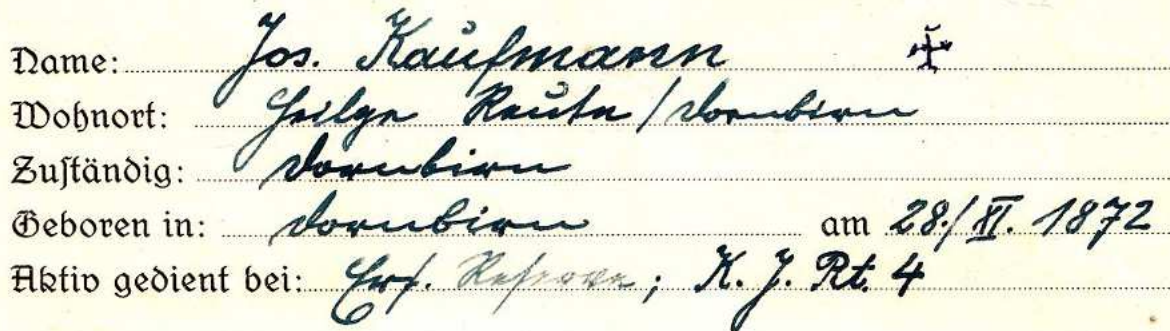 Name: Jos. Kaufmann
Wohnort: Heilge Reute / Dornbirn
Zuständig: Dornbirn
Geboren in: Dornbirn am 28./XI. 1872
Aktiv gedient bei: Ers. Reserve; K. J. Rt. 4